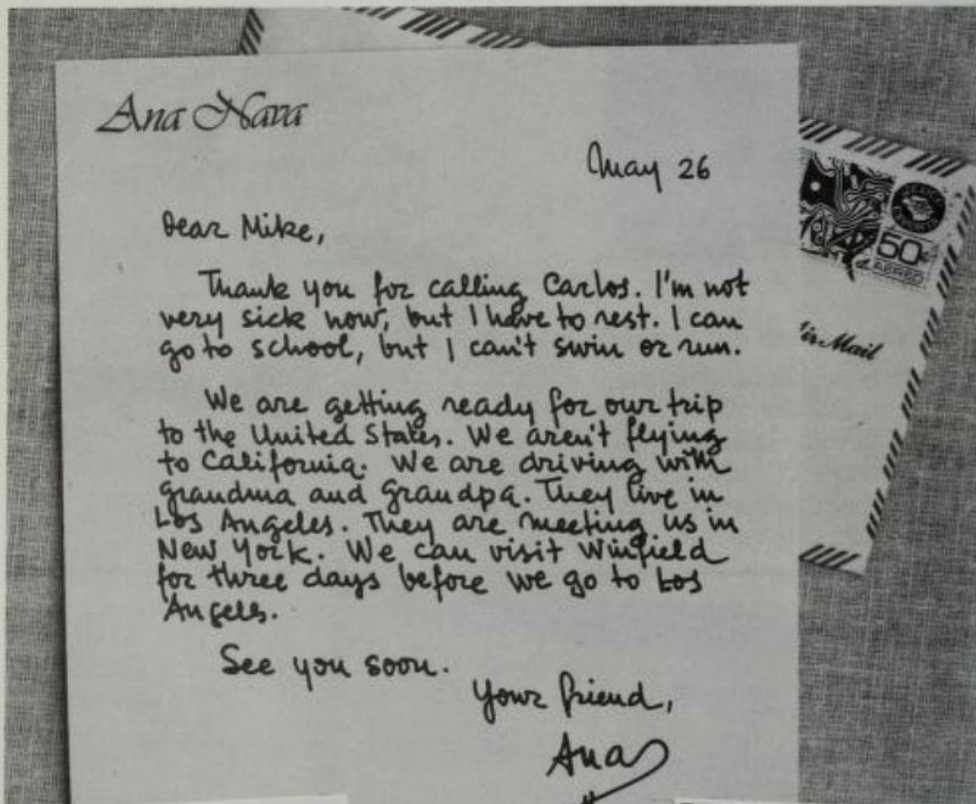 Ana Nava
May 26
Dear Mike,
Thank you for calling Carlos. I'm not
very sick now, but I have to rest. I can
go to school, but I can't swin or run.
We are getting ready for our trip
to the United States. We aren't flying
to California. We are driving with
grandma and grandpa. They live in
Los Angeles. They are meeting us in
New York. We can visit Winfield
for three days before we go to Los
Angels.
See you soon.
Your friend,
Ana
50¢
AEREO
Air Mail